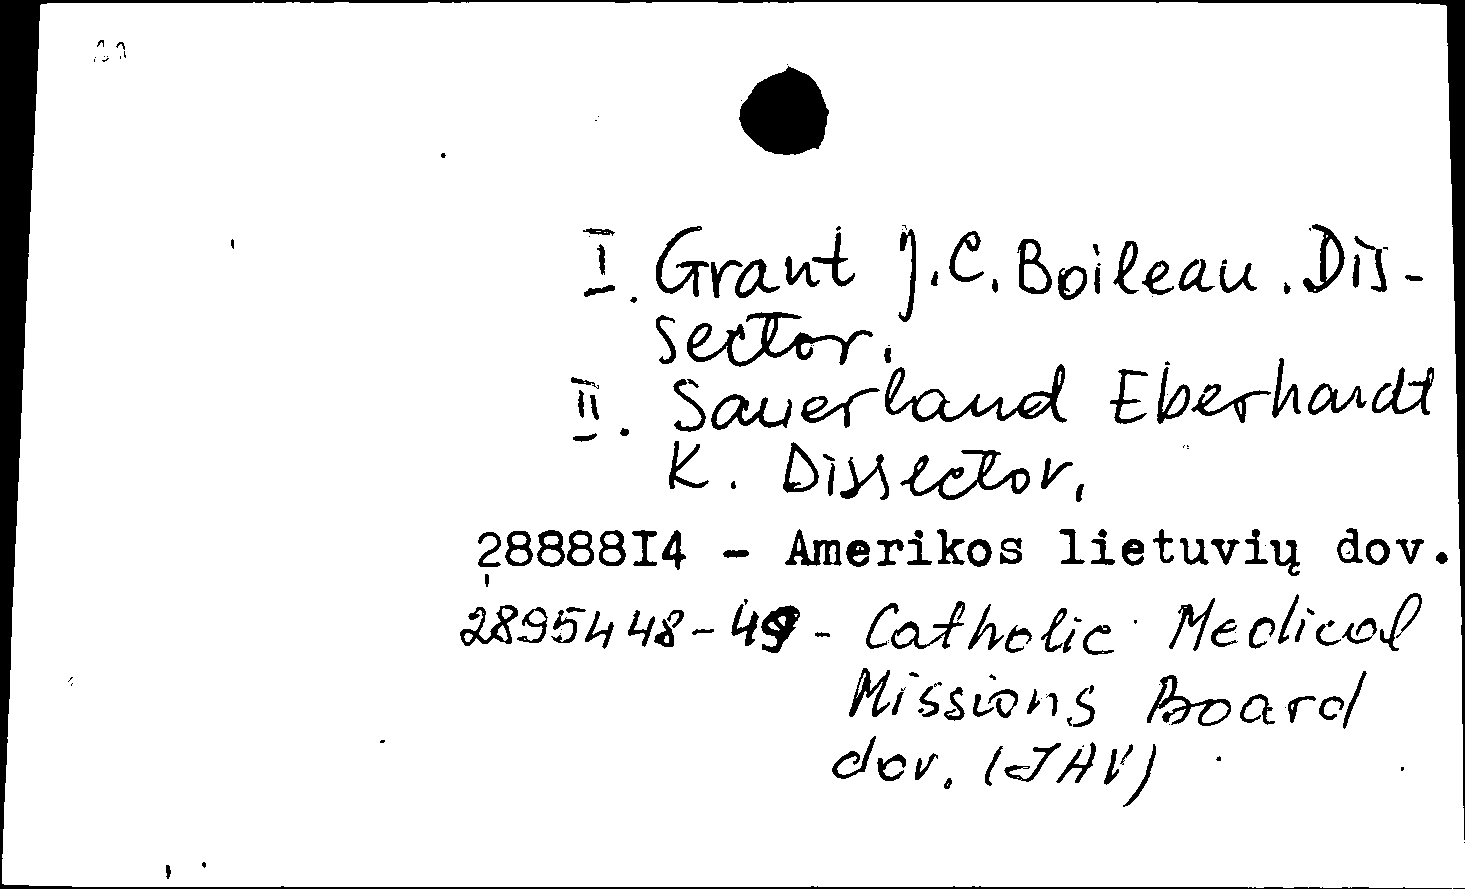 I. Grant J.C. Boileau. Dis-
sector.
II. Sauerland Eberhardt
K. Dissector.
28888I4 - Amerikos lietuvių dov.
2895448-49 - Catholic Medical
Missions Board
dov. (JAV)